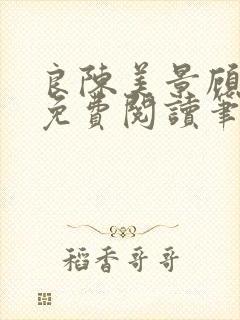 良陳美景顧
免費閱讀筆
稻香哥哥